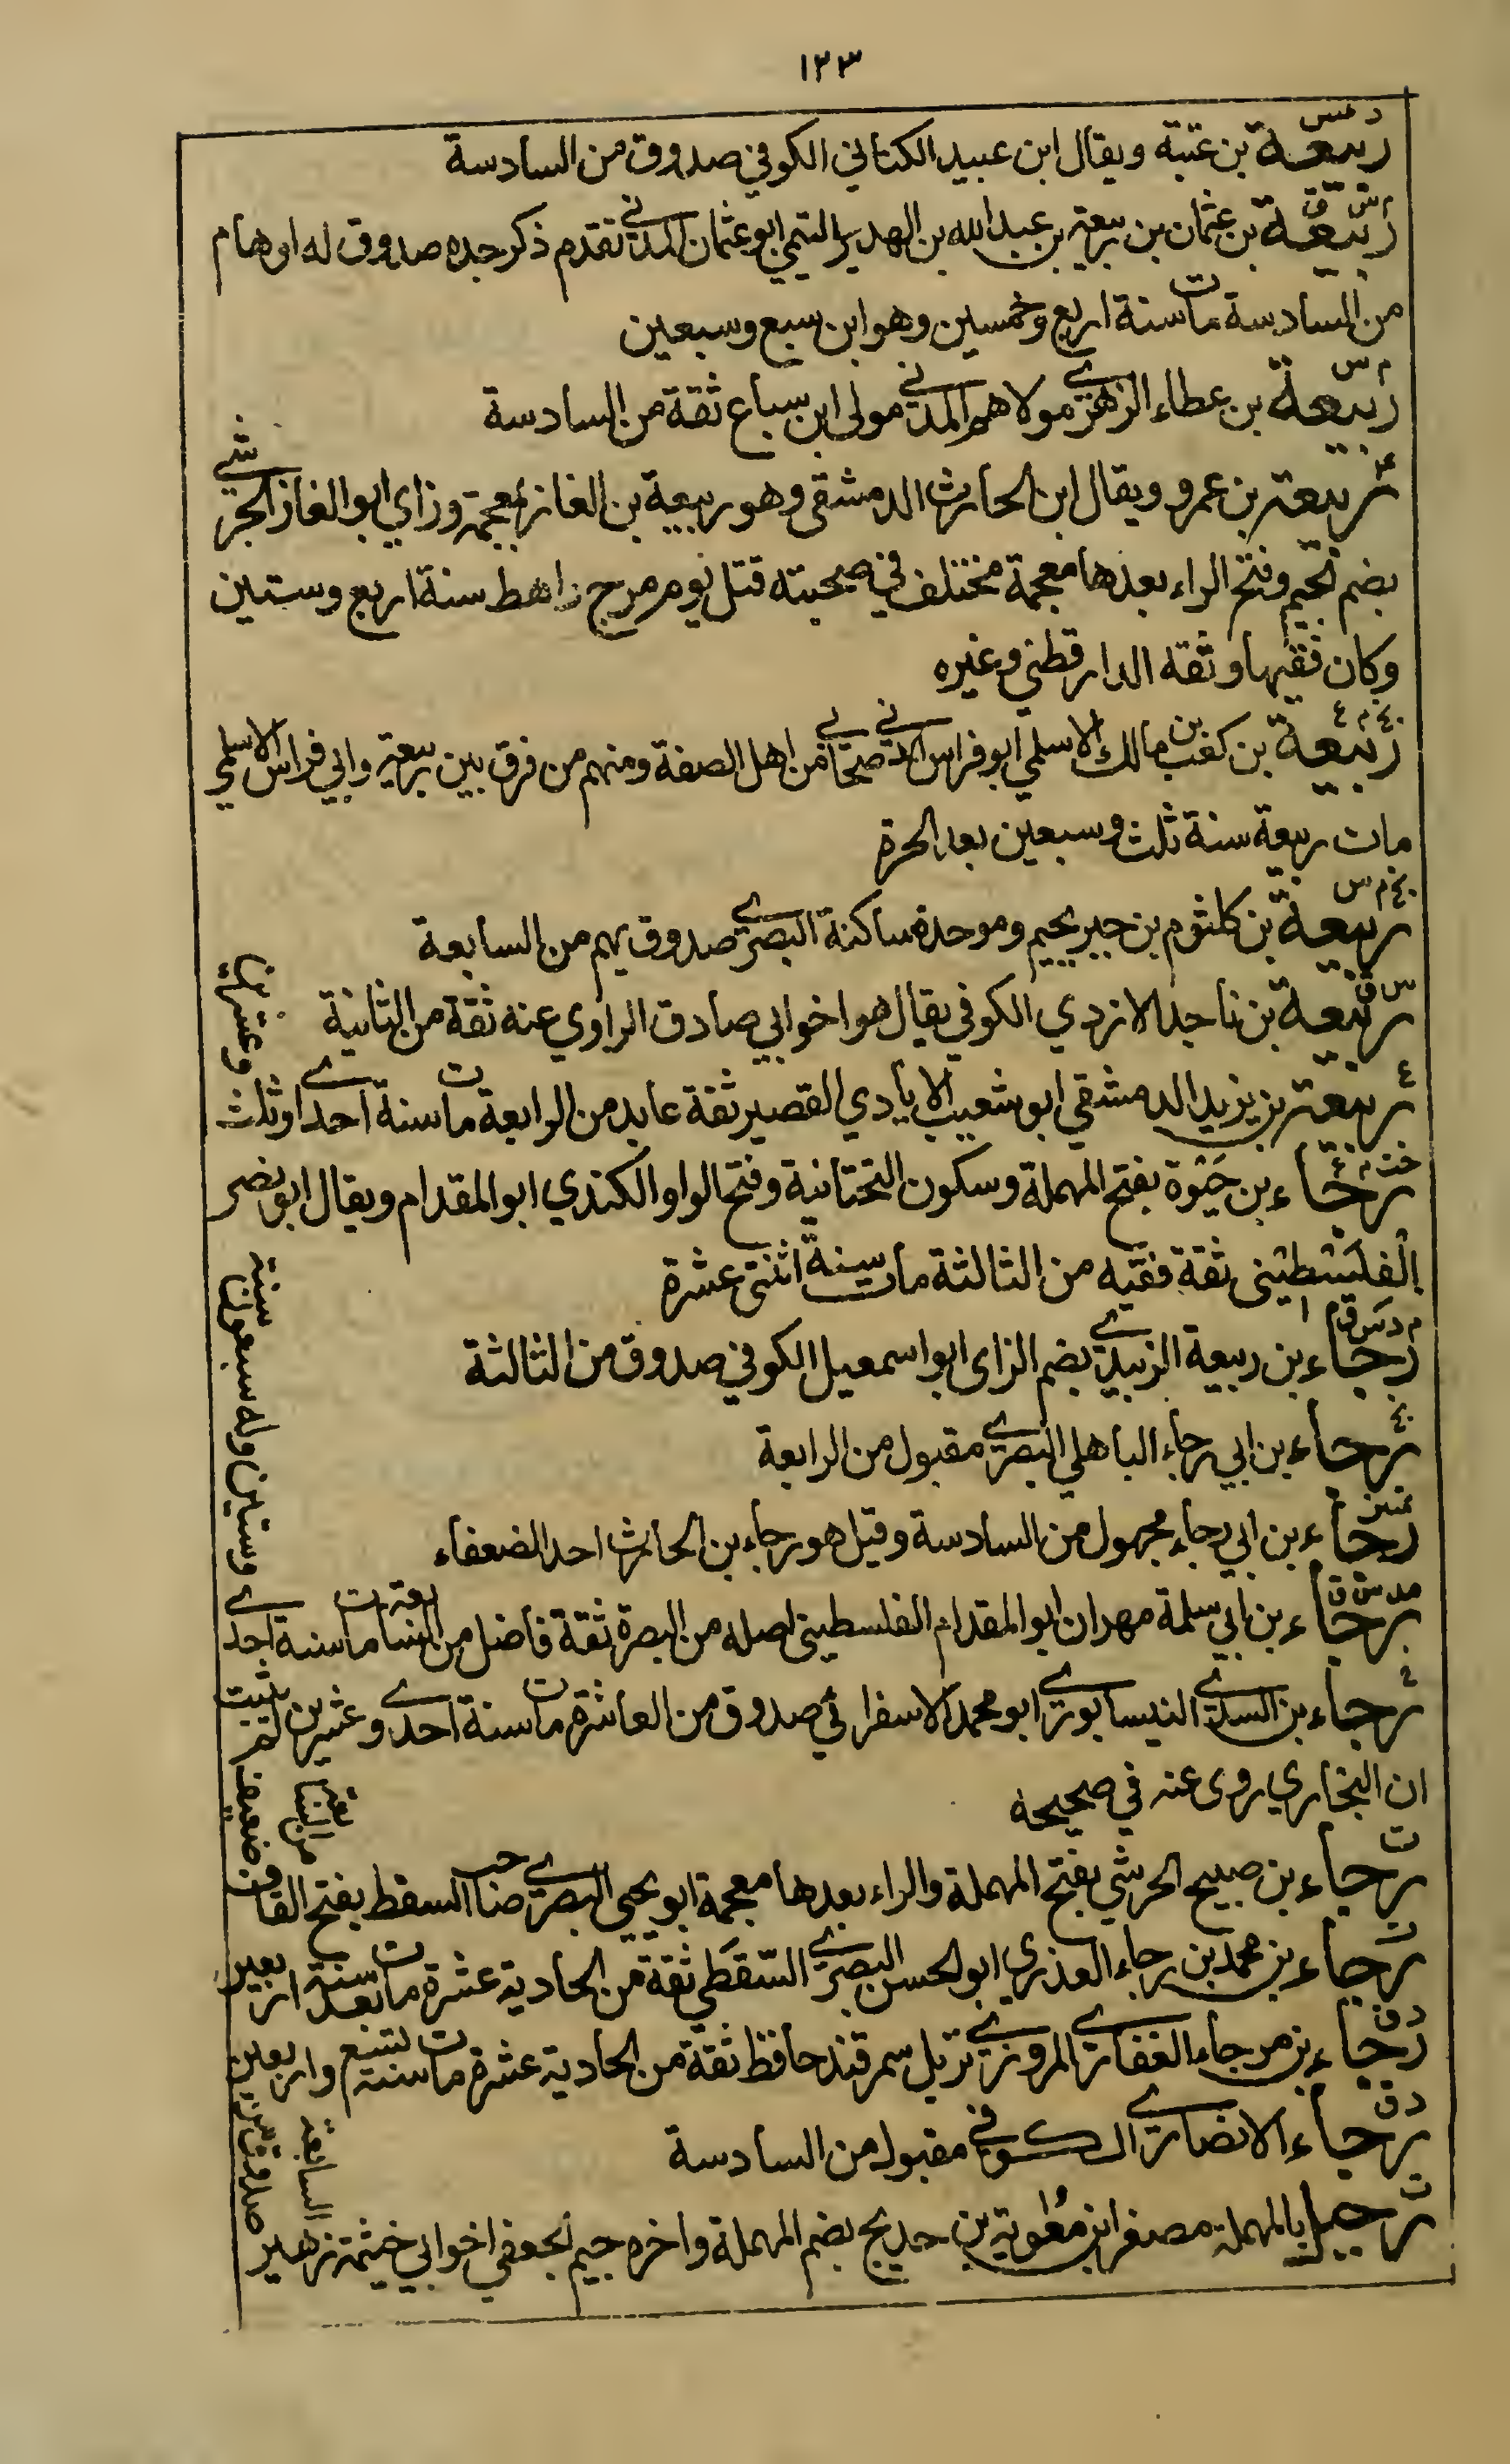 ١٢٣
د عس
ربيعة بن عتبة ويقال ابن عبيد الكناني الكوفي صدوق من السادسة
م س ق
ربيعة بن عثمان بن ربيعة بن عبد الله بن الهدير التيمي ابو عثمان المدني تقدم ذكر جده صدوق له اوهام
من السادسة مات سنة اربع وخمسين وهو ابن سبع وسبعين
م س
ربيعة بن عطاء الزهري مولاهم المدني مولى ابن سباع ثقة من السادسة
٤
ربيعة بن عمرو ويقال ابن الحارث الدمشقي وهو ربيعة بن الغاز بمعجمة وزاي ابو الغاز الجرشي
بضم الجيم وفتح الراء بعدها معجمة مختلف في صحبته قتل يوم مرج راهط سنة اربع وستين
وكان فقيها وثقه الدارقطني وغيره
بخ م ٤
ربيعة بن كعب بن مالك الاسلمي ابو فراس المدني صحابي من اهل الصفة ومنهم من فرق بين ربيعة وابي فراس الاسلمي
مات ربيعة سنة ثلث وسبعين بعد الحرة
بخ م س
ربيعة بن كلثوم بن جبر بجيم وموحدة ساكنة البصري صدوق يهم من السابعة
س ق
ربيعة بن ناجد الازدي الكوفي يقال هو اخو ابي صادق الراوي عنه ثقة من الثانية
ع
ربيعة بن يزيد الدمشقي ابو شعيب الايادي القصير ثقة عابد من الرابعة مات سنة احدى او ثلث وعشرين
خت م ٤
رجاء بن حيوة بفتح المهملة وسكون التحتانية وفتح الواو الكندي ابو المقدام ويقال ابو نصر
الفلسطيني ثقة فقيه من الثالثة مات سنة اثنتي عشرة
م د س ق
رجاء بن ربيعة الزبيدي بضم الزاى ابو اسمعيل الكوفي صدوق من الثالثة
بخ
رجاء بن ابي رجاء الباهلي البصري مقبول من الرابعة
رجاء بن ابي رجاء مجهول من السادسة وقيل هو رجاء بن الحارث احد الضعفاء
مد س ق
رجاء بن ابي سلمة مهران ابو المقدام الفلسطيني اصله من البصرة ثقة فاضل من السابعة مات سنة احدى وستين وله سبعون سنة
رجاء بن السندي النيسابوري ابو محمد الاسفرائي صدوق من العاشرة مات سنة احدى وعشرين لم يثبت
ان البخاري روى عنه في صحيحه
ت
رجاء بن صبيح الحرشي بفتح المهملة والراء بعدها معجمة ابو يحيى البصري صاحب السقط بفتح القاف ضعيف من السابعة
ق
رجاء بن محمد بن رجاء العذري ابو الحسن البصري السقطي ثقة من الحادية عشرة مات بعد سنة اربعين
د ق
رجاء بن مرجاء الغفاري المروزي نزيل سمرقند حافظ ثقة من الحادية عشرة مات سنة تسع واربعين
د ق
رجاء الانصاري الكوفي مقبول من السادسة
ت
رحيل بالمهملة مصغر ابن معوية بن حديج بضم المهملة واخره جيم الجعفي اخو ابي خيثمة زهير صدوق من السابعة